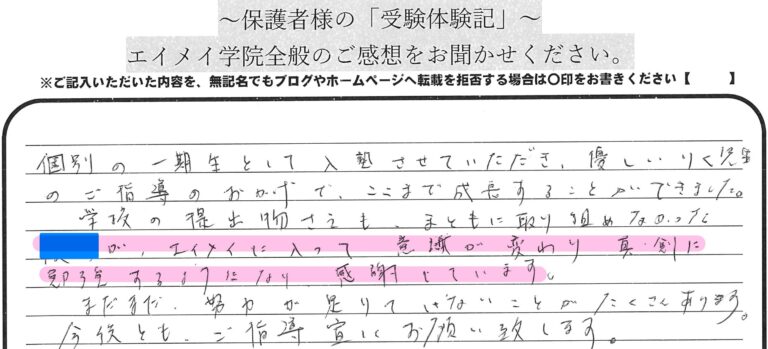 ～保護者様の「受験体験記」～
エイメイ学院全般のご感想をお聞かせください。
※ご記入いただいた内容を、無記名でもブログやホームページへ転載を拒否する場合は〇印をお書きください【　　】
個別の一期生として入塾させていただき、優しい
のご指導のおかげで、ここまで成長することができました。
学校の提出物さえも、まともに取り組めなかった
が、エイメイに入って意識が変わり真剣に
勉強するようになり、感謝しています。
まだまだ、努力が足りていないことがたくさんあります。
今後とも、ご指導宜しくお願い致します。